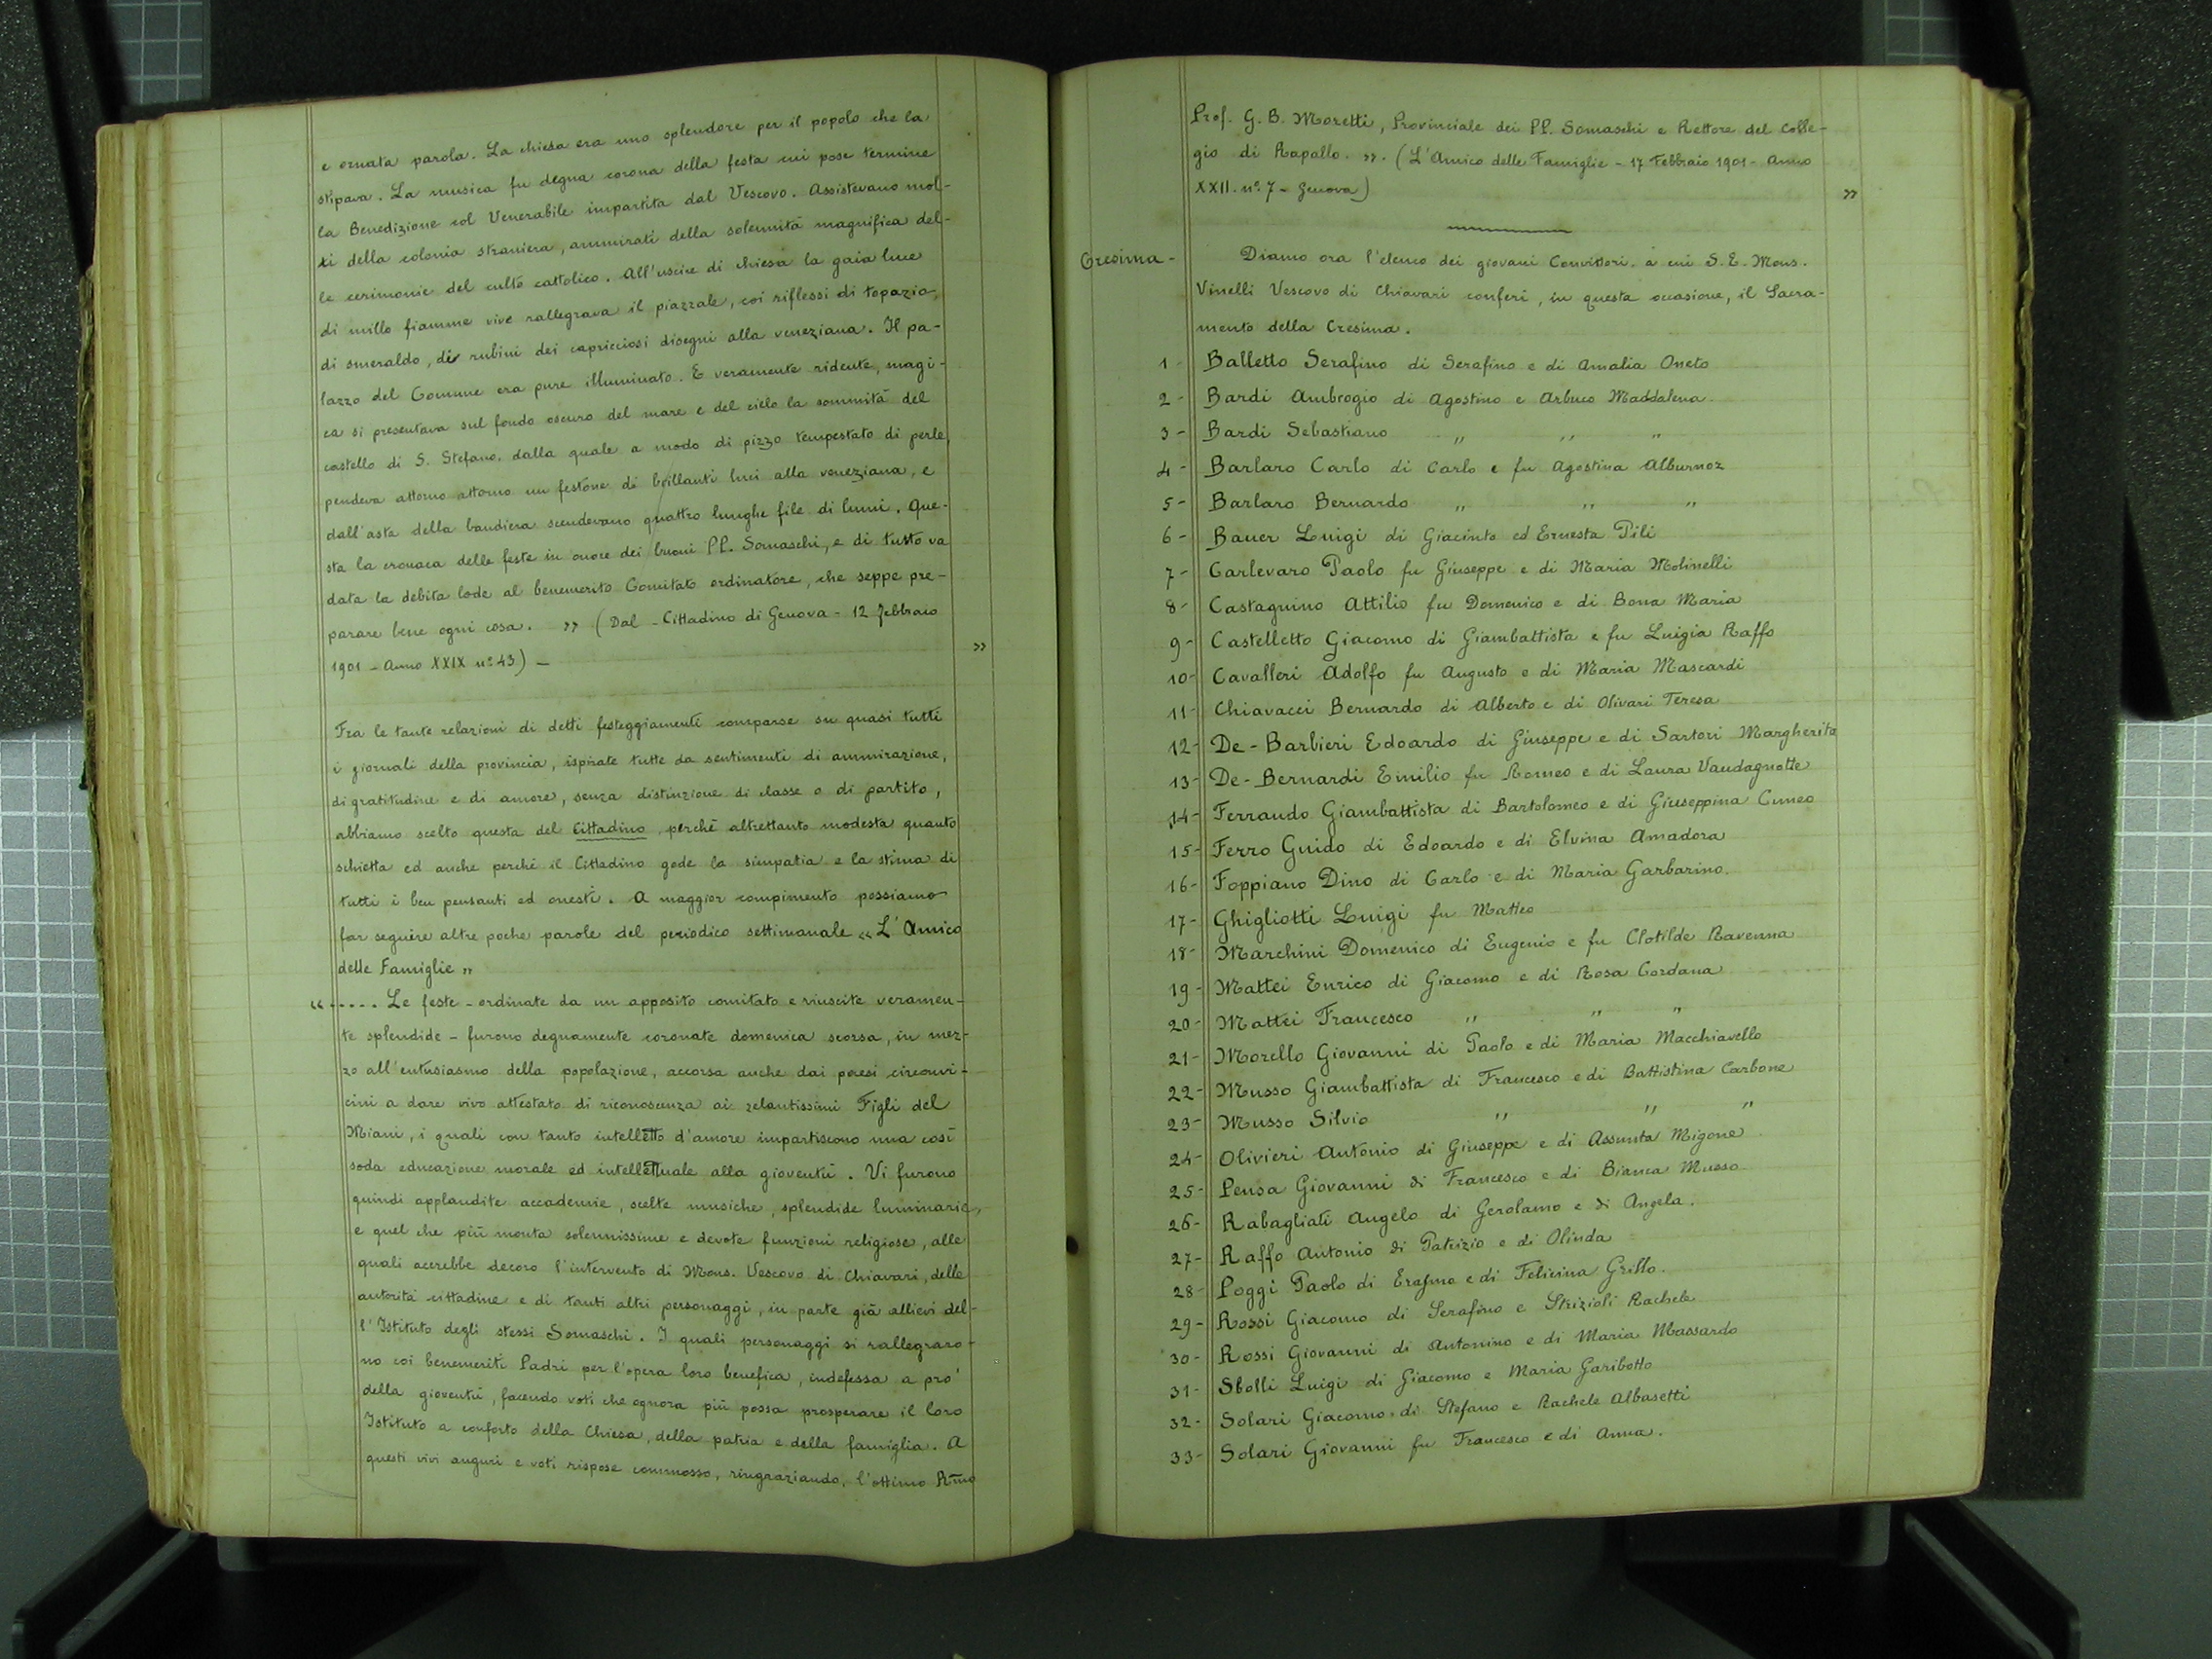 e ornata parola. La chiesa era uno splendore per il popolo che la
stipava. La musica fu degna corona della festa cui pose termine
la Benedizione col Venerabile impartita dal Vescovo. Assistevano mol-
ti della colonia straniera, ammirati della solennità magnifica del-
le cerimonie del culto cattolico. All'uscire di chiesa la gaia luce
di mille fiamme vive rallegrava il piazzale, coi riflessi di topazio,
di smeraldo, di rubini dei capricciosi disegni alla veneziana. Il pa-
lazzo del Comune era pure illuminato. E veramente ridente, magi-
ca si presentava sul fondo oscuro del mare e del cielo la sommità del
castello di S. Stefano, dalla quale a modo di pizzo tempestato di perle
pendeva attorno attorno un festone di brillanti luci alla veneziana, e
dall'asta della bandiera scendevano quattro lunghe file di lumi. Que-
sta la cronaca delle feste in onore dei buoni PP. Somaschi, e di tutto va
data la debita lode al benemerito Comitato ordinatore, che seppe pre-
parare bene ogni cosa. » (Dal - Cittadino di Genova - 12 febbraio
1901 - Anno XXIX nº 43) - »
Fra le tante relazioni di detti festeggiamenti comparse su quasi tutti
i giornali della provincia, ispirate tutte da sentimenti di ammirazione,
di gratitudine e di amore, senza distinzione di classe o di partito,
abbiamo scelto questa del Cittadino, perchè altrettanto modesta quanto
schietta ed anche perchè il Cittadino gode la simpatia e la stima di
tutti i ben pensanti ed onesti. A maggior compimento possiamo
far seguire altre poche parole del periodico settimanale « L'Amico
delle Famiglie »
« ..... Le feste - ordinate da un apposito comitato e riuscite veramen-
te splendide - furono degnamente coronate domenica scorsa, in mez-
zo all'entusiasmo della popolazione, accorsa anche dai paesi circonvi-
cini a dare vivo attestato di riconoscenza ai zelantissimi Figli del
Miani, i quali con tanto intelletto d'amore impartiscono una così
soda educazione morale ed intellettuale alla gioventù. Vi furono
quindi applaudite accademie, scelte musiche, splendide luminarie,
e quel che più monta solennissime e devote funzioni religiose, alle
quali accrebbe decoro l'intervento di Mons. Vescovo di Chiavari, delle
autorità cittadine e di tanti altri personaggi, in parte già allievi del-
l'Istituto degli stessi Somaschi. I quali personaggi si rallegraro-
no coi benemeriti Padri per l'opera loro benefica, indefessa a pro'
della gioventù, facendo voti che ognora più possa prosperare il loro
Istituto a conforto della Chiesa, della patria e della famiglia. A
questi vivi auguri e voti rispose commosso, ringraziando, l'ottimo Rmo
Prof. G. B. Moretti, Provinciale dei PP. Somaschi e Rettore del Colle-
gio di Rapallo. ». (L'Amico delle Famiglie - 17 Febbraio 1901 - Anno
XXII. nº 7 - Genova) »
Cresima - Diamo ora l'elenco dei giovani Convittori, a cui S. E. Mons.
Vinelli Vescovo di Chiavari conferì, in questa occasione, il Sacra-
mento della Cresima.
1 - Balletto Serafino di Serafino e di Amalia Oneto
2 - Bardi Ambrogio di Agostino e Arbuco Maddalena.
3 - Bardi Sebastiano " " "
4 - Barlaro Carlo di Carlo e fu Agostina Alburnoz
5 - Barlaro Bernardo " " "
6 - Bauer Luigi di Giacinto ed Ernesta Pili
7 - Carlevaro Paolo fu Giuseppe e di Maria Molinelli
8 - Castagnino Attilio fu Domenico e di Bona Maria
9 - Castelletto Giacomo di Giambattista e fu Luigia Raffo
10 - Cavalleri Adolfo fu Augusto e di Maria Mascardi
11 - Chiavacci Bernardo di Alberto e di Olivari Teresa
12 - De-Barbieri Edoardo di Giuseppe e di Sartori Margherita
13 - De-Bernardi Emilio fu Romeo e di Laura Vaudagnotte
14 - Ferrando Giambattista di Bartolomeo e di Giuseppina Cuneo
15 - Ferro Guido di Edoardo e di Elvina Amadora
16 - Foppiano Dino di Carlo e di Maria Garbarino.
17 - Ghigliotti Luigi fu Matteo
18 - Marchini Domenico di Eugenio e fu Clotilde Ravenna
19 - Mattei Enrico di Giacomo e di Rosa Cordana
20 - Mattei Francesco " " "
21 - Morello Giovanni di Paolo e di Maria Macchiavello
22 - Musso Giambattista di Francesco e di Battistina Carbone
23 - Musso Silvio " " "
24 - Olivieri Antonio di Giuseppe e di Assunta Migone
25 - Pensa Giovanni di Francesco e di Bianca Musso
26 - Rabagliati Angelo di Gerolamo e di Angela.
27 - Raffo Antonio di Patrizio e di Olinda
28 - Poggi Paolo di Erasmo e di Felicina Grillo.
29 - Rossi Giacomo di Serafino e Strizioli Rachele
30 - Rossi Giovanni di Antonino e di Maria Massardo
31 - Sbolli Luigi di Giacomo e Maria Garibotto
32 - Solari Giacomo di Stefano e Rachele Albasetti
33 - Solari Giovanni fu Francesco e di Anna.